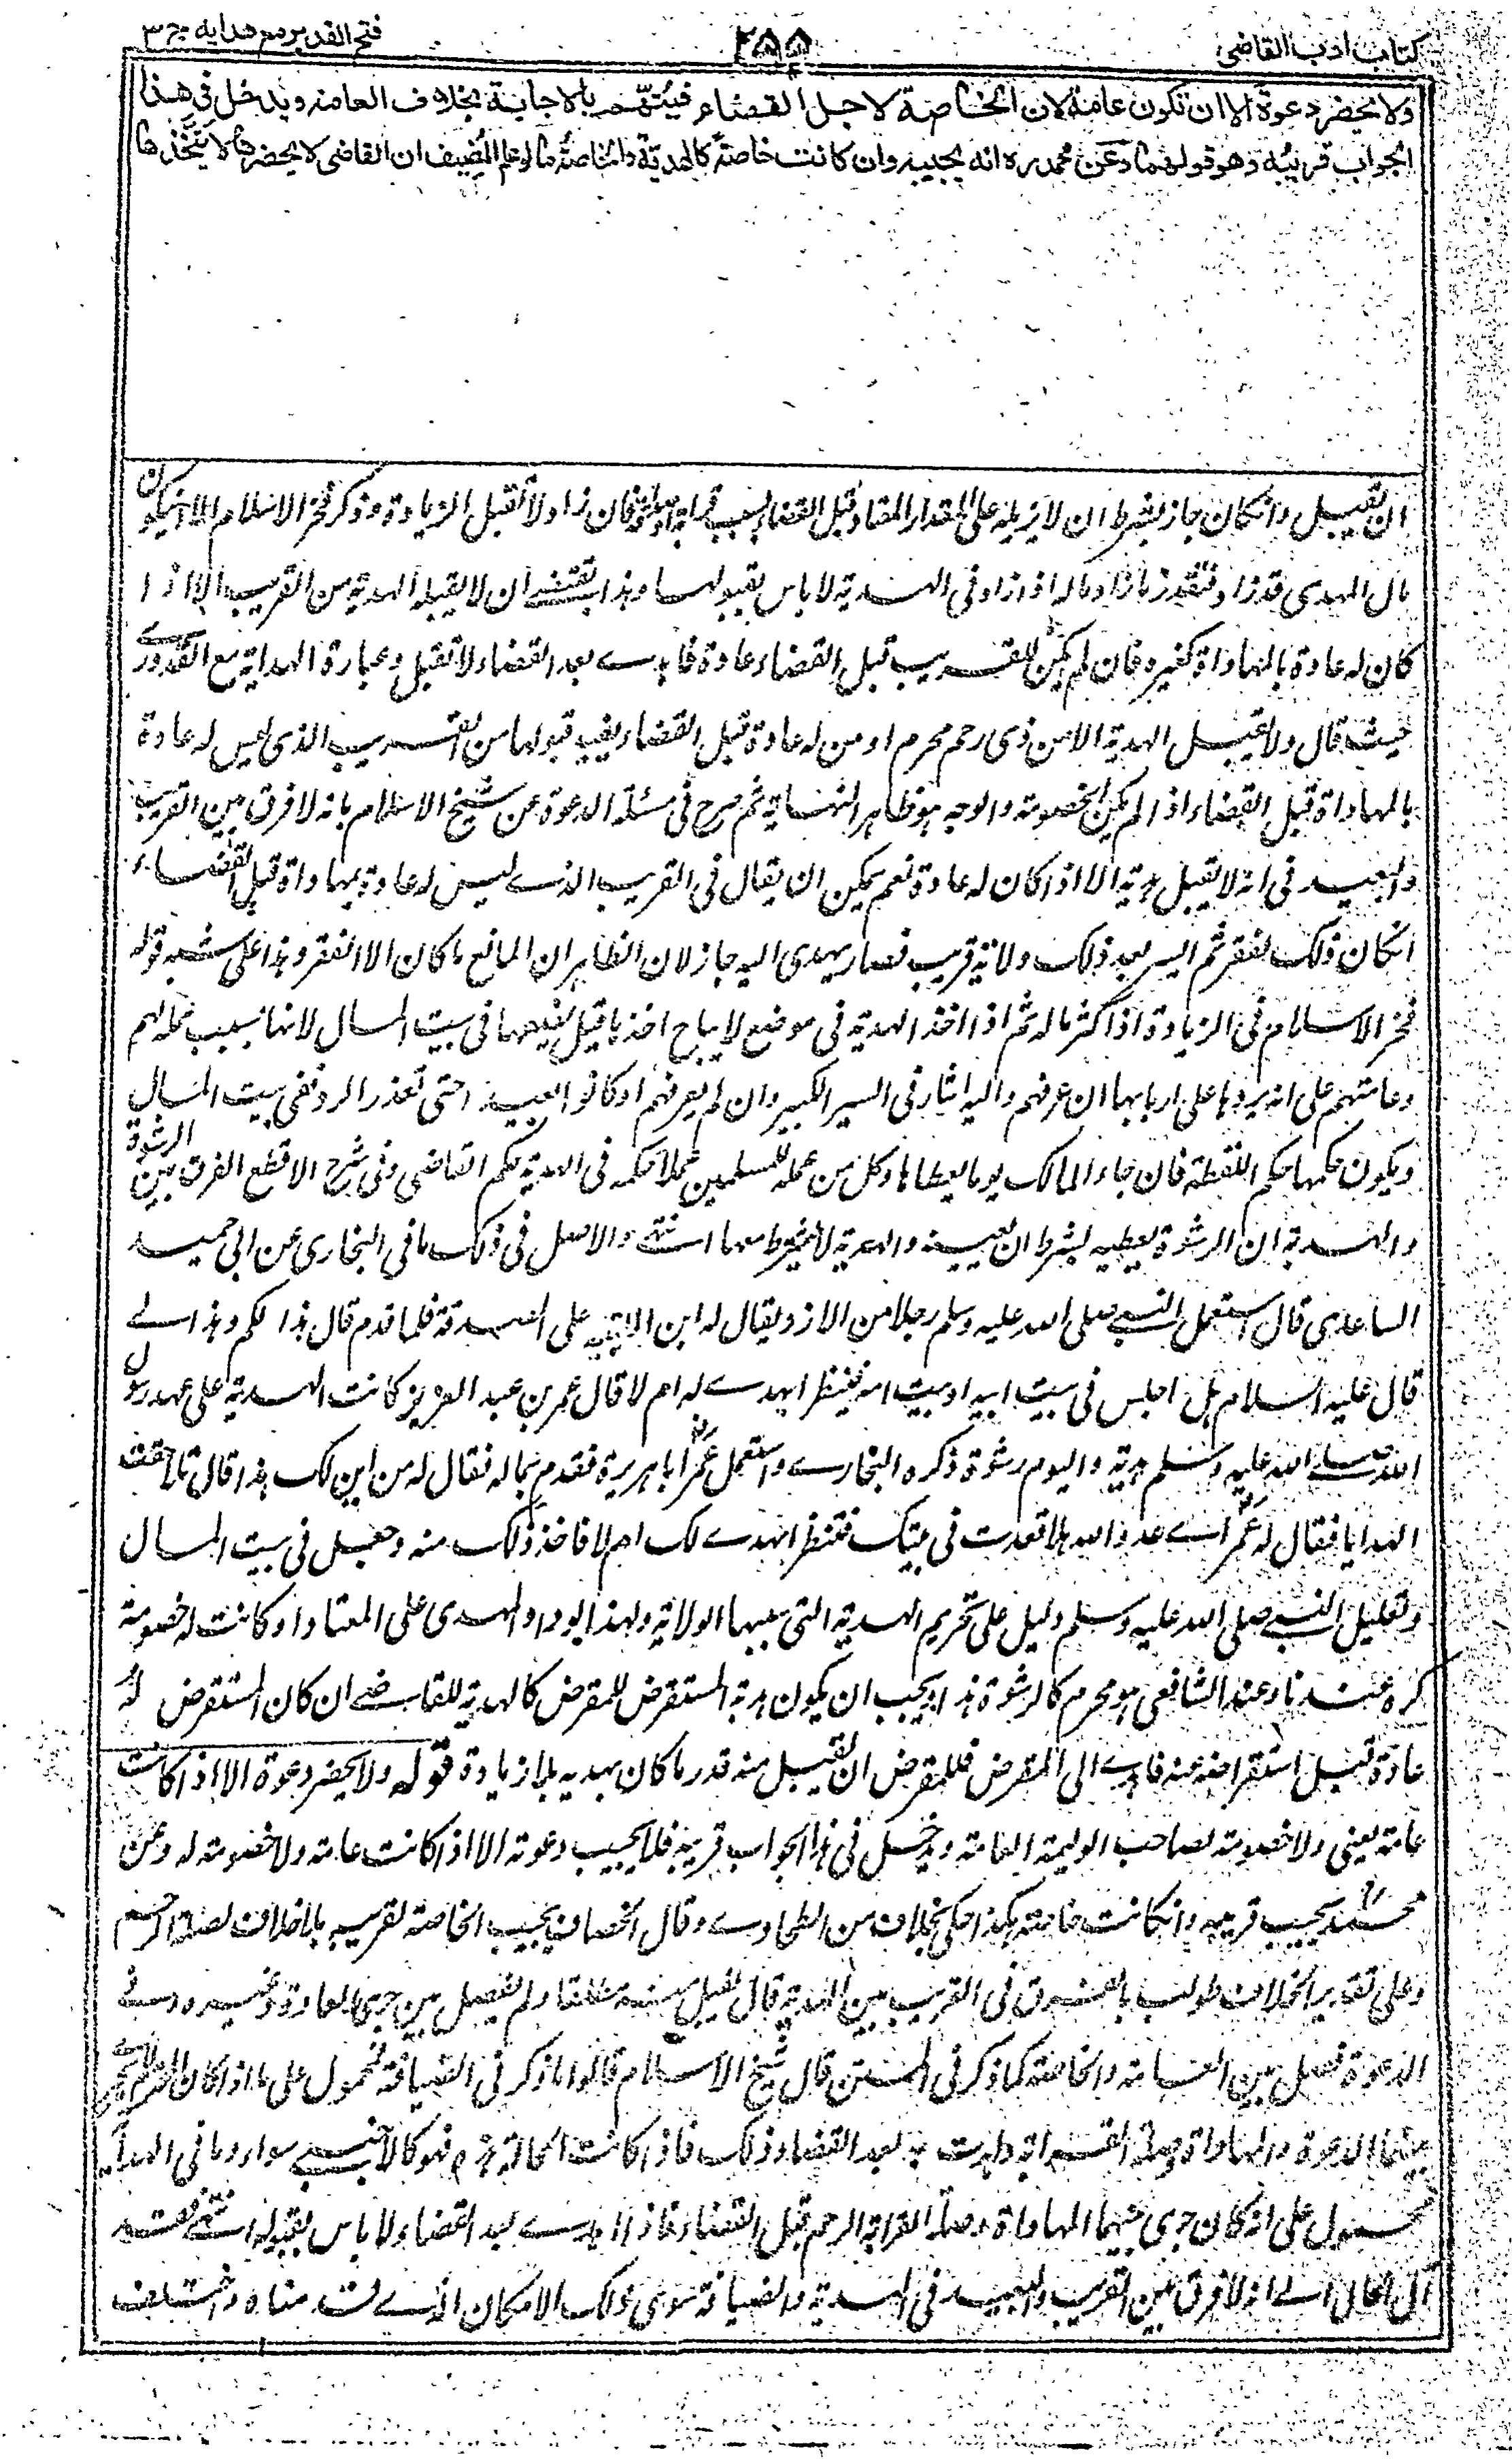 كتاب ادب القاضى
٢٥٥
فتح القدير مع هدايه ج ٣
ولا يحضر دعوة الا ان تكون عامة لان الخاصة لاجل القضاء فيتهم بالاجابة بخلاف العامة ويدخل فى هذا
الجواب قريبه وهو قولهما وعن محمد ره انه يجيبه وان كانت خاصة كالهدية والخاصة ما لو علم المضيف ان القاضى لا يحضرها لا يتخذها
ان يقبل وانكان جاز بشرط ان لا يزيد على المقدار المعتاد قبل القضاء بسبب قرابة او صداقة فان زاد لا تقبل الزيادة وذكر فخر الاسلام الا ان يكون
مال المهدى قد زاد فبقدر ما زاد ماله اذا زاد فى الهدية لا باس بقبولها وهذا يقتضے ان لا يقبل الهدية من القريب الا اذا
كان له عادة بالمهاداة كغيره فان لم يكن للقريب قبل القضاء عادة فاہدے بعد القضاء لا تقبل وعبارة الهداية مع القدورے
حيث قال ولا يقبل الهدية الا من ذى رحم محرم او من له عادة قبل القضاء يفيد قبولها من القريب الذى ليس له عادة
بالمهاداة قبل القضاء اذا لم يكن خصومة والوجه هو ظاهر النهاية ثم صرح فى مسئلة الدعوة عن شيخ الاسلام بانه لا فرق بين القريب
والبعيد فى انه لا يقبل هدية الا اذا كان له عادة نعم يمكن ان يقال فى القريب الذے ليس له عادة بمهاداة قبل القضاء
انكان ذلك لفقر ثم ايسر بعد ذلك ولاية قريب فصار يهدى اليه جاز لان الظاهر ان المانع ما كان الا الفقر وهذا على شبه قول
فخر الاسلام فى الزيادة اذا كثر ماله ثم اذا اخذ الهدية فى موضع لا يباح اخذها قيل يضعها فى بيت المال لانها بسبب عمله لهم
وعامتهم على انه يردها على اربابها ان عرفهم واليه اشار فى السير الكبير وان لم يعرفهم او كانوا بعيدا حتى تعذر الرد ففى بيت المال
ويكون حكمها حكم اللقطة فان جاء المالك يوما يعطاها وكل من عمل للمسلمين عملا حكمه فى الهدية حكم القاضى وفى شرح الاقطع الفرق بين الرشوة
والهدية ان الرشوة يعطيه بشرط ان يعينه والهدية لا شرط معها انتهے والاصل فى ذلك ما فى البخارى عن ابى حميد
الساعدى قال استعمل النبے صلى الله عليه وسلم رجلا من الازد يقال له ابن اللتبية على الصدقة فلما قدم قال هذا لكم وهذا لے
قال عليه السلام هلا جلس فى بيت ابيه او بيت امه فينظر ايهدے له ام لا قال عمر بن عبد العزيز كانت الهدية على عهد رسول
الله صلے الله عليه وسلم هدية واليوم رشوة ذكره البخارے واستعمل عمر ابا هريرة فقدم بمال فقال له من اين لك هذا قال تلاحقت
الهدايا فقال له عمر اے عدو الله هلا قعدت فى بيتك فتنظر ايهدے لك ام لا فاخذ ذلك منه وجعل فى بيت المال
وتعليل النبے صلى الله عليه وسلم دليل على تحريم الهدية التى سببها الولاية ولهذا لو زاد المهدى على المعتاد او كانت له خصومة
كره عندنا وعند الشافعى هو محرم كالرشوة هذا ويجب ان يكون هدية المستقرض للمقرض كالهدية للقاضے ان كان المستقرض له
عادة قبل استقراضه عنه فاهدے الى المقرض فللمقرض ان يقبل منه قدر ما كان يهديه بلا زيادة قوله ولا يحضر دعوة الا اذا كانت
عامة يعنى ولا خصومة لصاحب الوليمة العامة ويدخل فى هذا الجواب قريبه فلا يجيب دعوته الا اذا كانت عامة ولا خصومة له وعن
محمد يجيب قريبه وانكانت خاصة هكذا حكى الخلاف من الطحاوے وقال الخصاف يجيب الخاصة لقريبه بلا خلاف لصلة الرحم
وعلى تقدير الخلاف طولب بالفرق فى القريب بين الهدية قال يقبل منه مطلقا ولم يفصل بين جرى العادة وغيره وفے
الدعوة فصل بين العامة والخاصة كما ذكر فى المتن قال شيخ الاسلام قالوا ما ذكر فى الضيافة محمول على ما اذا كان المحرم لم يجر
بينهما الدعوة والمهاداة وصلة القرابة واحدث بعد القضاء ذلك فاذا كانت الحالة هذه فهو كالاجنبے سواء وما فى الهدايا
محمول على انه كان جرى بينهما المهاداة وصلة القرابة الرحم قبل القضاء فاذا اهدے بعد القضاء لا باس بقبوله انتهے فقد
آل الحال الے انه لا فرق بين القريب والبعيد فى الهدية والضيافة سوى ذلك الامكان الذے قدمناه واختلف